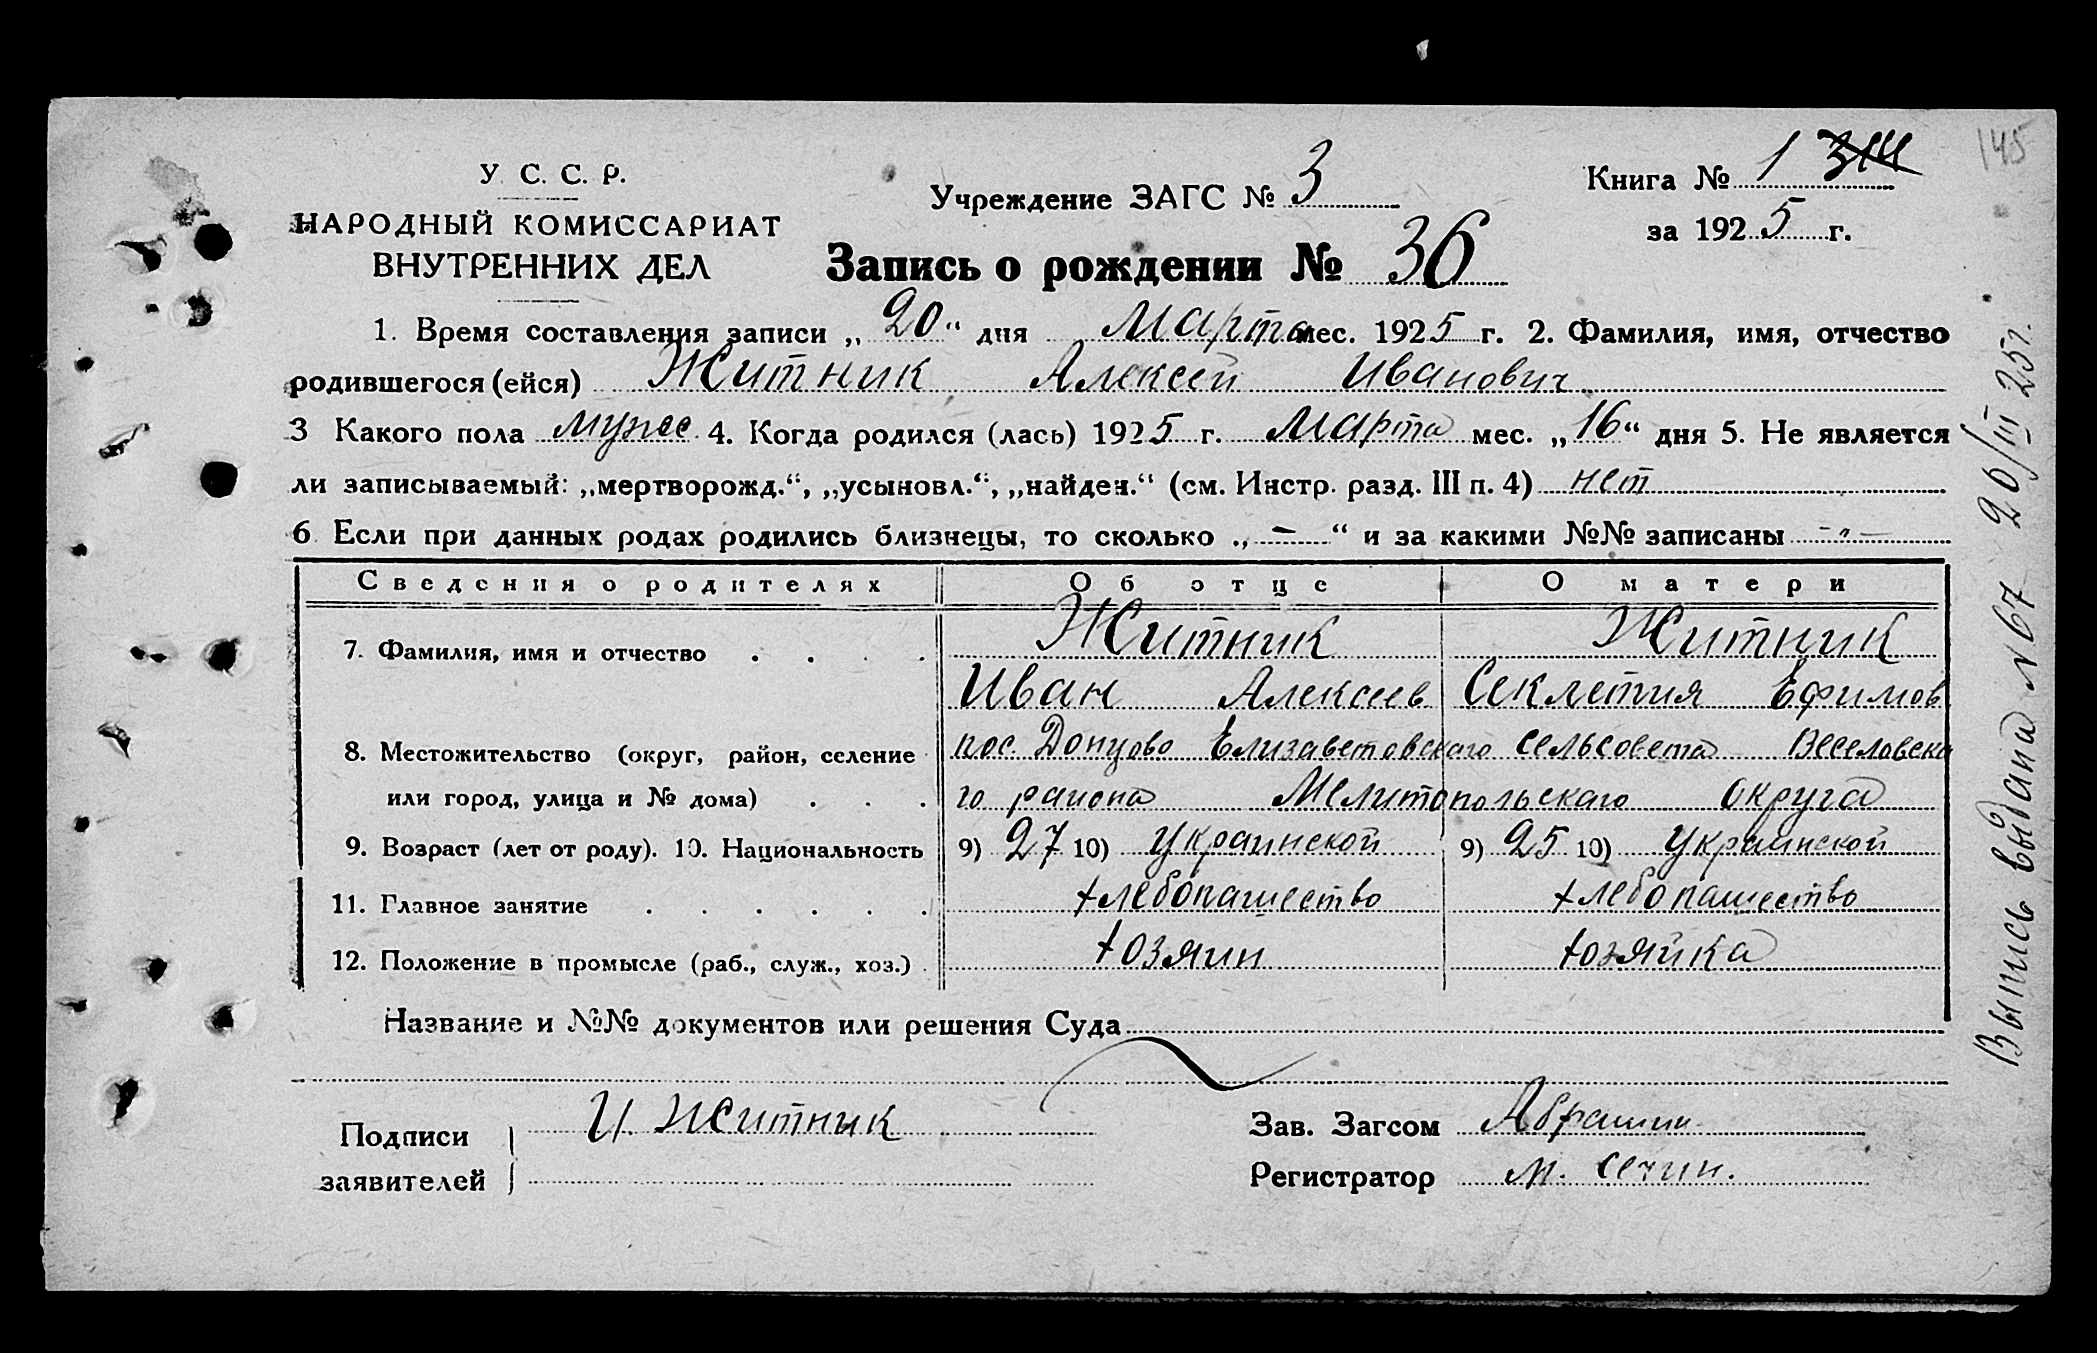 145
У. С. С. Р.
НАРОДНЫЙ КОМИССАРИАТ
ВНУТРЕННИХ ДЕЛ
Учреждение ЗАГС № 3
Книга № 1 314
за 1925 г.
Запись о рождении № 36
1. Время составления записи „20“ дня Марта мес. 1925 г. 2. Фамилия, имя, отчество
родившегося (ейся) Житник Алексей Иванович
3 Какого пола мужс. 4. Когда родился (лась) 1925 г. Марта мес. „16“ дня 5. Не является
ли записываемый: „мертворожд.“, „усыновл.“, „найден.“ (см. Инстр. разд. III п. 4) нет
6 Если при данных родах родились близнецы, то сколько „—“ и за какими №№ записаны -„-
Сведения о родителях Об отце О матери
7. Фамилия, имя и отчество . . . . Житник Житник
Иван Алексеев Секлетия Ефимов
8. Местожительство (округ, район, селение пос. Донцово Елизаветовскаго сельсовета Веселовска
или город, улица и № дома) . . . го района Мелитопольскаго округа
9. Возраст (лет от роду). 10. Национальность 9) 27 10) Украинской 9) 25 10) Украинской
11. Главное занятие . . . . . . хлебопашество хлебопашество
12. Положение в промысле (раб., служ., хоз.) . хозяин хозяйка
Название и №№ документов или решения Суда
Подписи И. Житник
заявителей
Зав. Загсом Абрашин
Регистратор М. Сечин.
Выпись выдана № 67 20/III 25г.